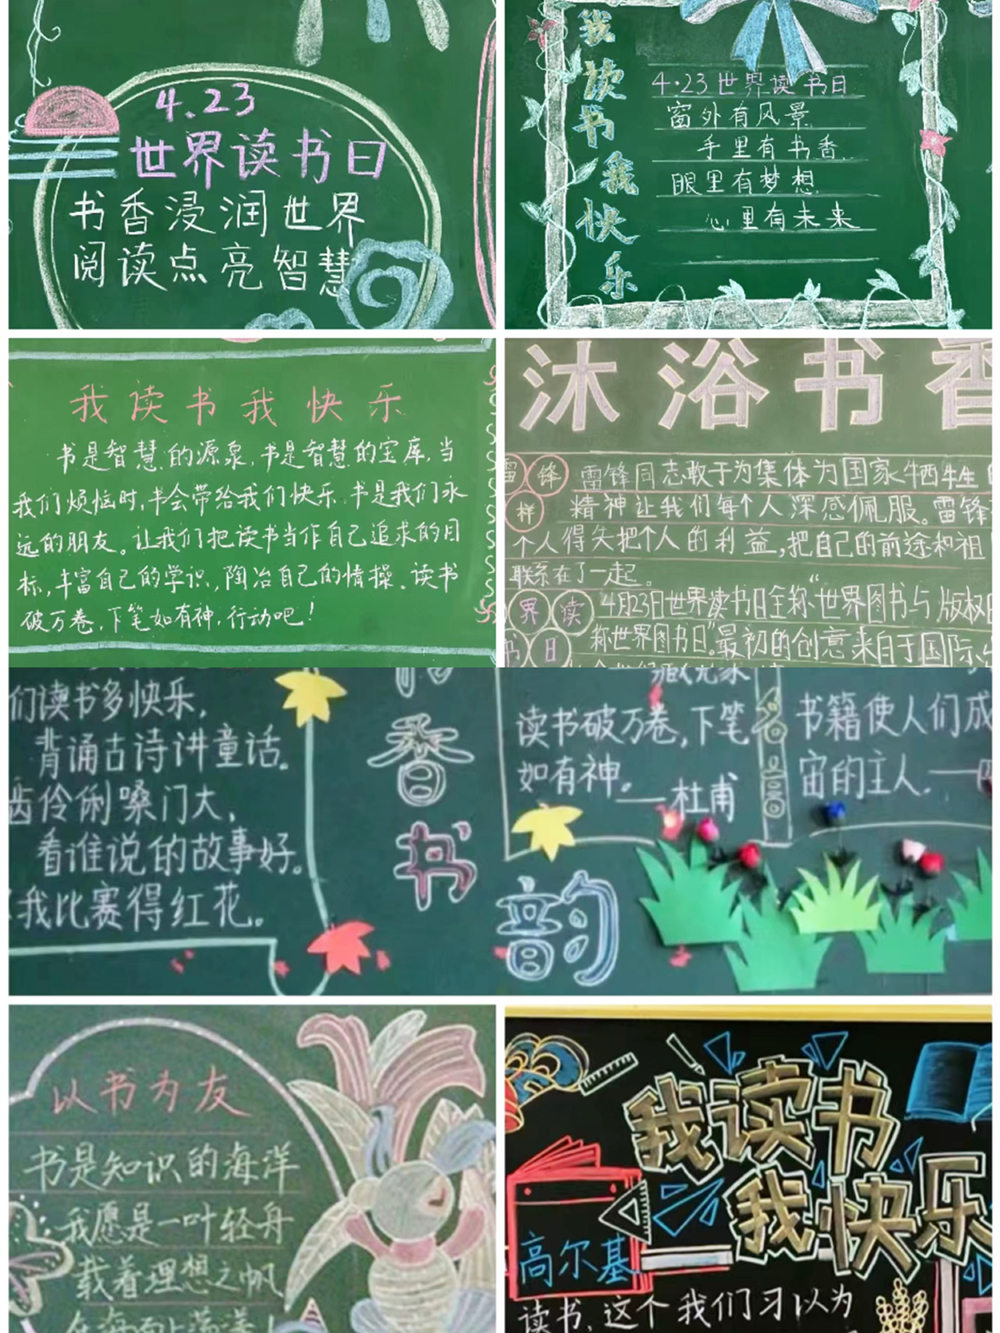 4.23
世界读书日
书香浸润世界
阅读点亮智慧
我读书我快乐
4.23世界读书日
窗外有风景
手里有书香
眼里有梦想
心里有未来
我读书我快乐
书是智慧的源泉,书是智慧的宝库,当
我们烦恼时,书会带给我们快乐,书是我们永
远的朋友。让我们把读书当作自己追求的目
标,丰富自己的学识,陶冶自己的情操、读书
破万卷,下笔如有神,行动吧!
沐浴书香
雷锋
样
雷锋同志敢于为集体为国家牺牲
精神让我们每个人深感佩服。雷锋
个人得失把个人的利益,把自己的前途和祖
联系在了一起。
界读
书日
4月23日世界读书日全称“世界图书与版权
称世界图书日”最初的创意来自于国际
们读书多快乐,
背诵古诗讲童话。
齿伶俐嗓门大,
看谁说的故事好。
我比赛得红花。
香书
韵
读书破万卷,下笔
如有神。
——杜甫
名言
书籍使人们成
宙的主人.——
以书为友
书是知识的海洋
我愿是一叶轻舟
载着理想之帆
我读书
我快乐
高尔基
读书,这个我们习以为